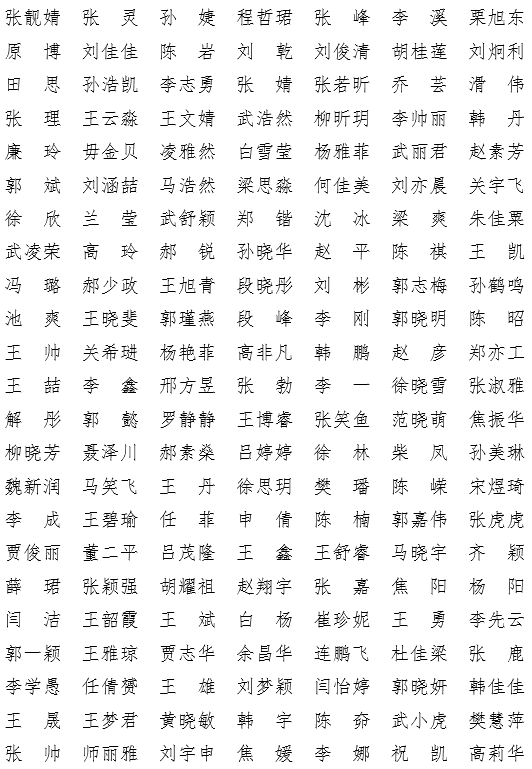 张靓婧 张灵 孙婕 程哲珺 张峰 李溪 栗旭东
原博 刘佳佳 陈岩 刘乾 刘俊清 胡桂莲 刘炯利
田思 孙浩凯 李志勇 张婧 张若昕 乔芸 滑伟
张理 王云淼 王文婧 武浩然 柳昕玥 李帅丽 韩丹
廉玲 毋金贝 凌雅然 白雪莹 杨雅菲 武丽君 赵素芳
郭斌 刘涵喆 马浩然 梁思淼 何佳美 刘亦晨 关宇飞
徐欣 兰莹 武舒颖 郑锴 沈冰 梁爽 朱佳粟
武凌荣 高玲 郝锐 孙晓华 赵平 陈祺 王凯
冯璐 郝少政 王旭青 段晓彤 刘彬 郭志梅 孙鹤鸣
池爽 王晓斐 郭瑾燕 段峰 李刚 郭晓明 陈昭
王帅 关希琎 杨艳菲 高非凡 韩鹏 赵彦 郑亦工
王喆 李鑫 邢方昱 张勃 李一 徐晓雪 张淑雅
解彤 郭懿 罗静静 王博睿 张笑鱼 范晓萌 焦振华
柳晓芳 聂泽川 郝素燊 吕婷婷 徐林 柴凤 孙美琳
魏新润 马笑飞 王丹 徐思玥 樊璠 陈嵘 宋煜琦
李成 王碧瑜 任菲 申倩 陈楠 郭嘉伟 张虎虎
贾俊丽 董二平 吕茂隆 王鑫 王舒睿 马晓宇 齐颖
薛珺 张颖强 胡耀祖 赵翔宇 张嘉 焦阳 杨阳
闫洁 王韶霞 王斌 白杨 崔珍妮 王勇 李先云
郭一颖 王雅琼 贾志华 余昌华 连鹏飞 杜佳梁 张鹿
李学愚 任倩赟 王雄 刘梦颖 闫怡婷 郭晓妍 韩佳佳
王晟 王梦君 黄晓敏 韩宇 陈奇 武小虎 樊慧萍
张帅 师丽雅 刘宇申 焦媛 李娜 祝凯 高莉华